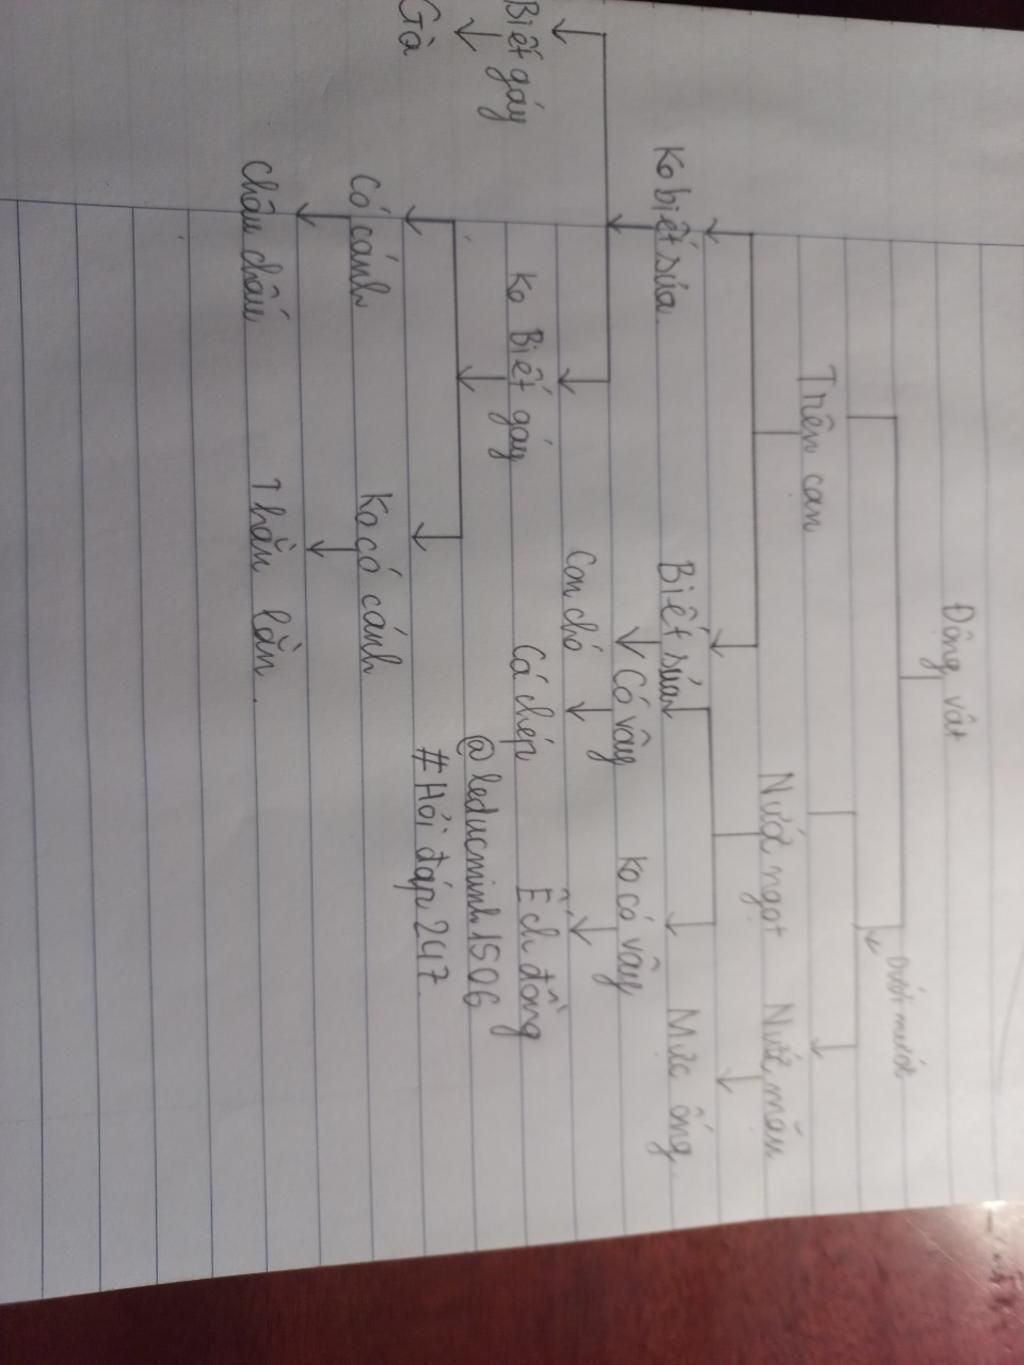 Động vật
Trên cạn
Dưới nước
Nước ngọt
Nước mặn
Ko biết sủa
Biết sủa
Mực ống
Có vây
Ko có vây
Con chó
Biết gáy
Ko Biết gáy
Cá chép
Ếch đồng
Gà
@leducminh1506
Có cánh
Ko có cánh
#Hỏi đáp 247
Châu chấu
Thằn lằn